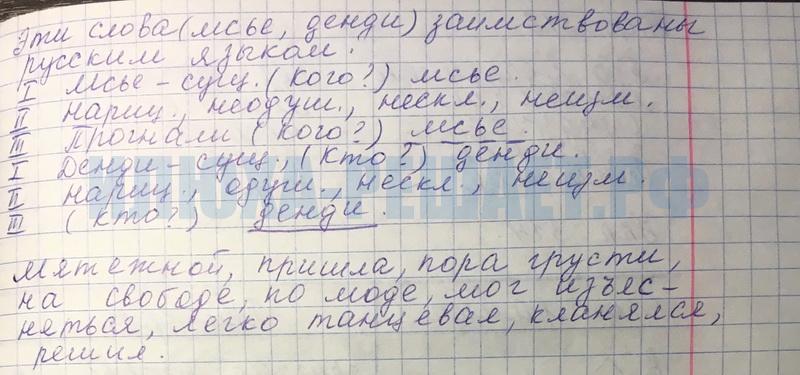 эти слова (мсье, денди) заимствованы
русским языком.
I мсье – сущ. (кого?) мсье.
II нариц., неодуш., нескл., неизм.
III Прогнали (кого?) мсье.
I Денди – сущ., (кто?) денди.
II нариц., одуш., нескл., неизм.
III (кто?) денди.
Мятежной, пришла, пора грусти,
на свободе, по моде, мог изъяс-
няться, легко танцевал, кланялся,
решил.